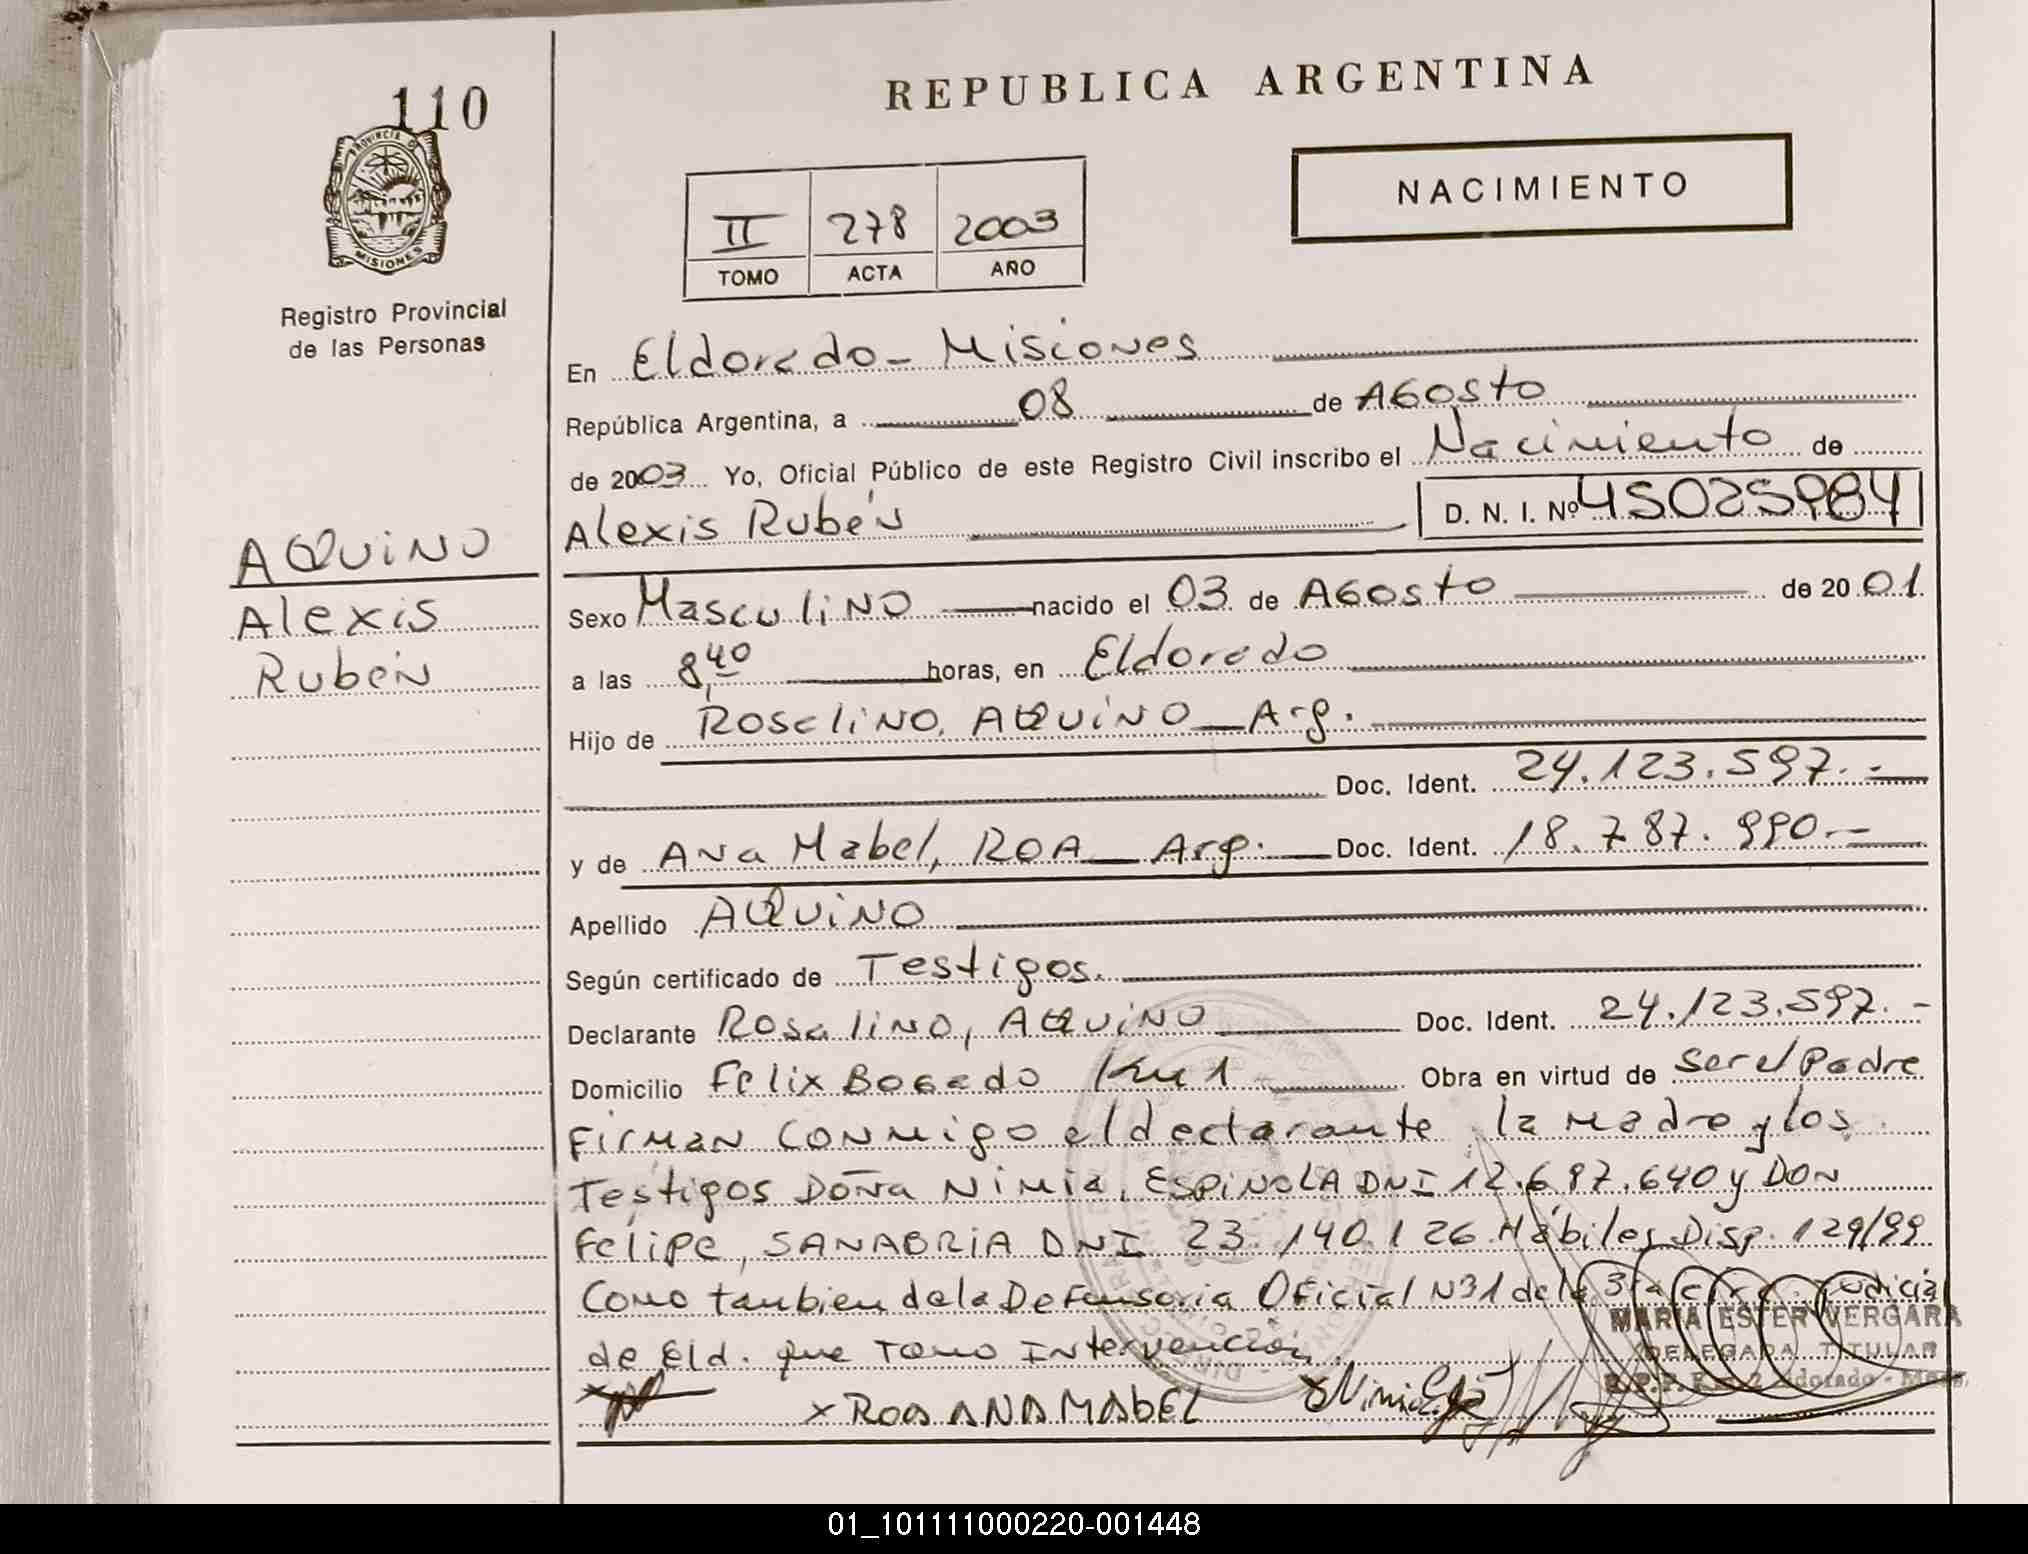 110
REPUBLICA ARGENTINA
PROVINCIA DE
MISIONES
Registro Provincial
de las Personas
NACIMIENTO
II 278 2003
TOMO ACTA AÑO
En Eldorado - Misiones
República Argentina, a 08 de AGosto
de 2003 Yo, Oficial Público de este Registro Civil inscribo el Nacimiento de
Alexis Rubén D. N. I. Nº 45025984
AQUINO
Alexis
Rubén
Sexo Masculino nacido el 03 de AGosto de 2001.
a las 8,40 horas, en Eldorado
Hijo de Rosalino, AQUINO - Arg.
Doc. Ident. 24.123.597.-
y de Ana Mabel, ROA - Arg. Doc. Ident. 18.787.990.-
Apellido AQUINO
Según certificado de Testigos.
Declarante Rosalino, AQUINO Doc. Ident. 24.123.597.-
Domicilio Felix Bogado Km 1 Obra en virtud de Ser el Padre
Firman conmigo el declarante, la madre y los
Testigos Doña Nimia, ESPINOLA DNI 12.697.640 y DON
Felipe, SANABRIA DNI 23.140.126 Hábiles Disp. 129/99
Como tambien de la Defensoria Oficial N31 de la 3ra Circ. Judicial
de Eld. que Tomo Intervención
MARIA ESTER VERGARA
DELEGADA TITULAR
R.P.P. Km. 2 Eldorado - Mnes.
x ROA ANA MABEL
01_101111000220-001448